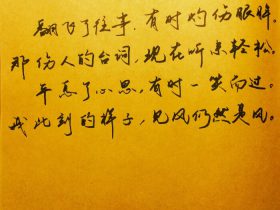 翻飞了往事，有时灼伤眼眸。
那伤人的台词，现在听来轻松。
平息了心思，有时一笑而过。
我此刻的样子，见风仍然是风。